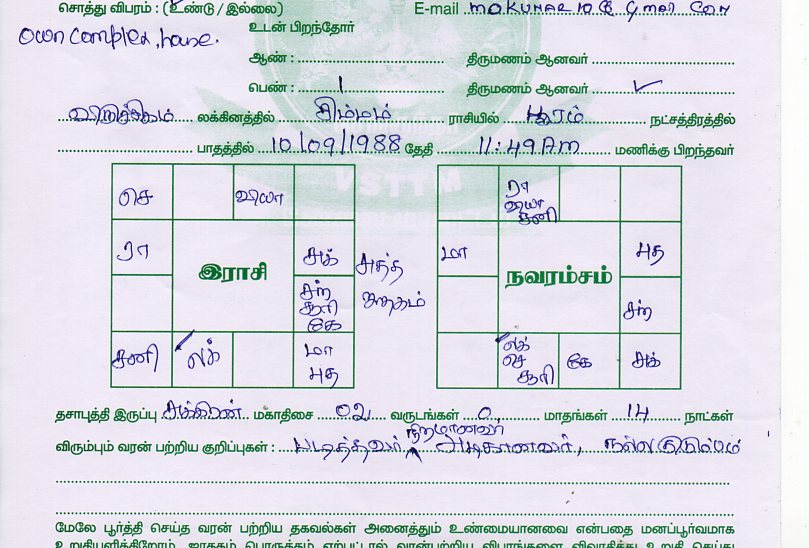 சொத்து விபரம் : (உண்டு / இல்லை) E-mail mokumar10@gmail.com
உடன் பிறந்தோர்
Own complex, house.
ஆண் : திருமணம் ஆனவர்
பெண் : 1 திருமணம் ஆனவர் ✓
விருச்சிகம் லக்கினத்தில் சிம்மம் ராசியில் பூரம் நட்சத்திரத்தில்
பாதத்தில் 10/09/1988 தேதி 11:49 Am மணிக்கு பிறந்தவர்
செ வியா
ரா
வியா
சனி
ரா இராசி சுக் சுத்த
ஜாதகம் மா நவரம்சம் புத
சந்
சூரி
கே சந்
சனி லக் மா
புத
லக்
செ
சூரி கே சுக்
தசாபுத்தி இருப்பு சுக்கிரன் மகாதிசை 02 வருடங்கள் 0 மாதங்கள் 14 நாட்கள்
நிறமானவர்
விரும்பும் வரன் பற்றிய குறிப்புகள் : படித்தவர், அழகானவர், நல்ல குடும்பம்
மேலே பூர்த்தி செய்த வரன் பற்றிய தகவல்கள் அனைத்தும் உண்மையானவை என்பதை மனப்பூர்வமாக